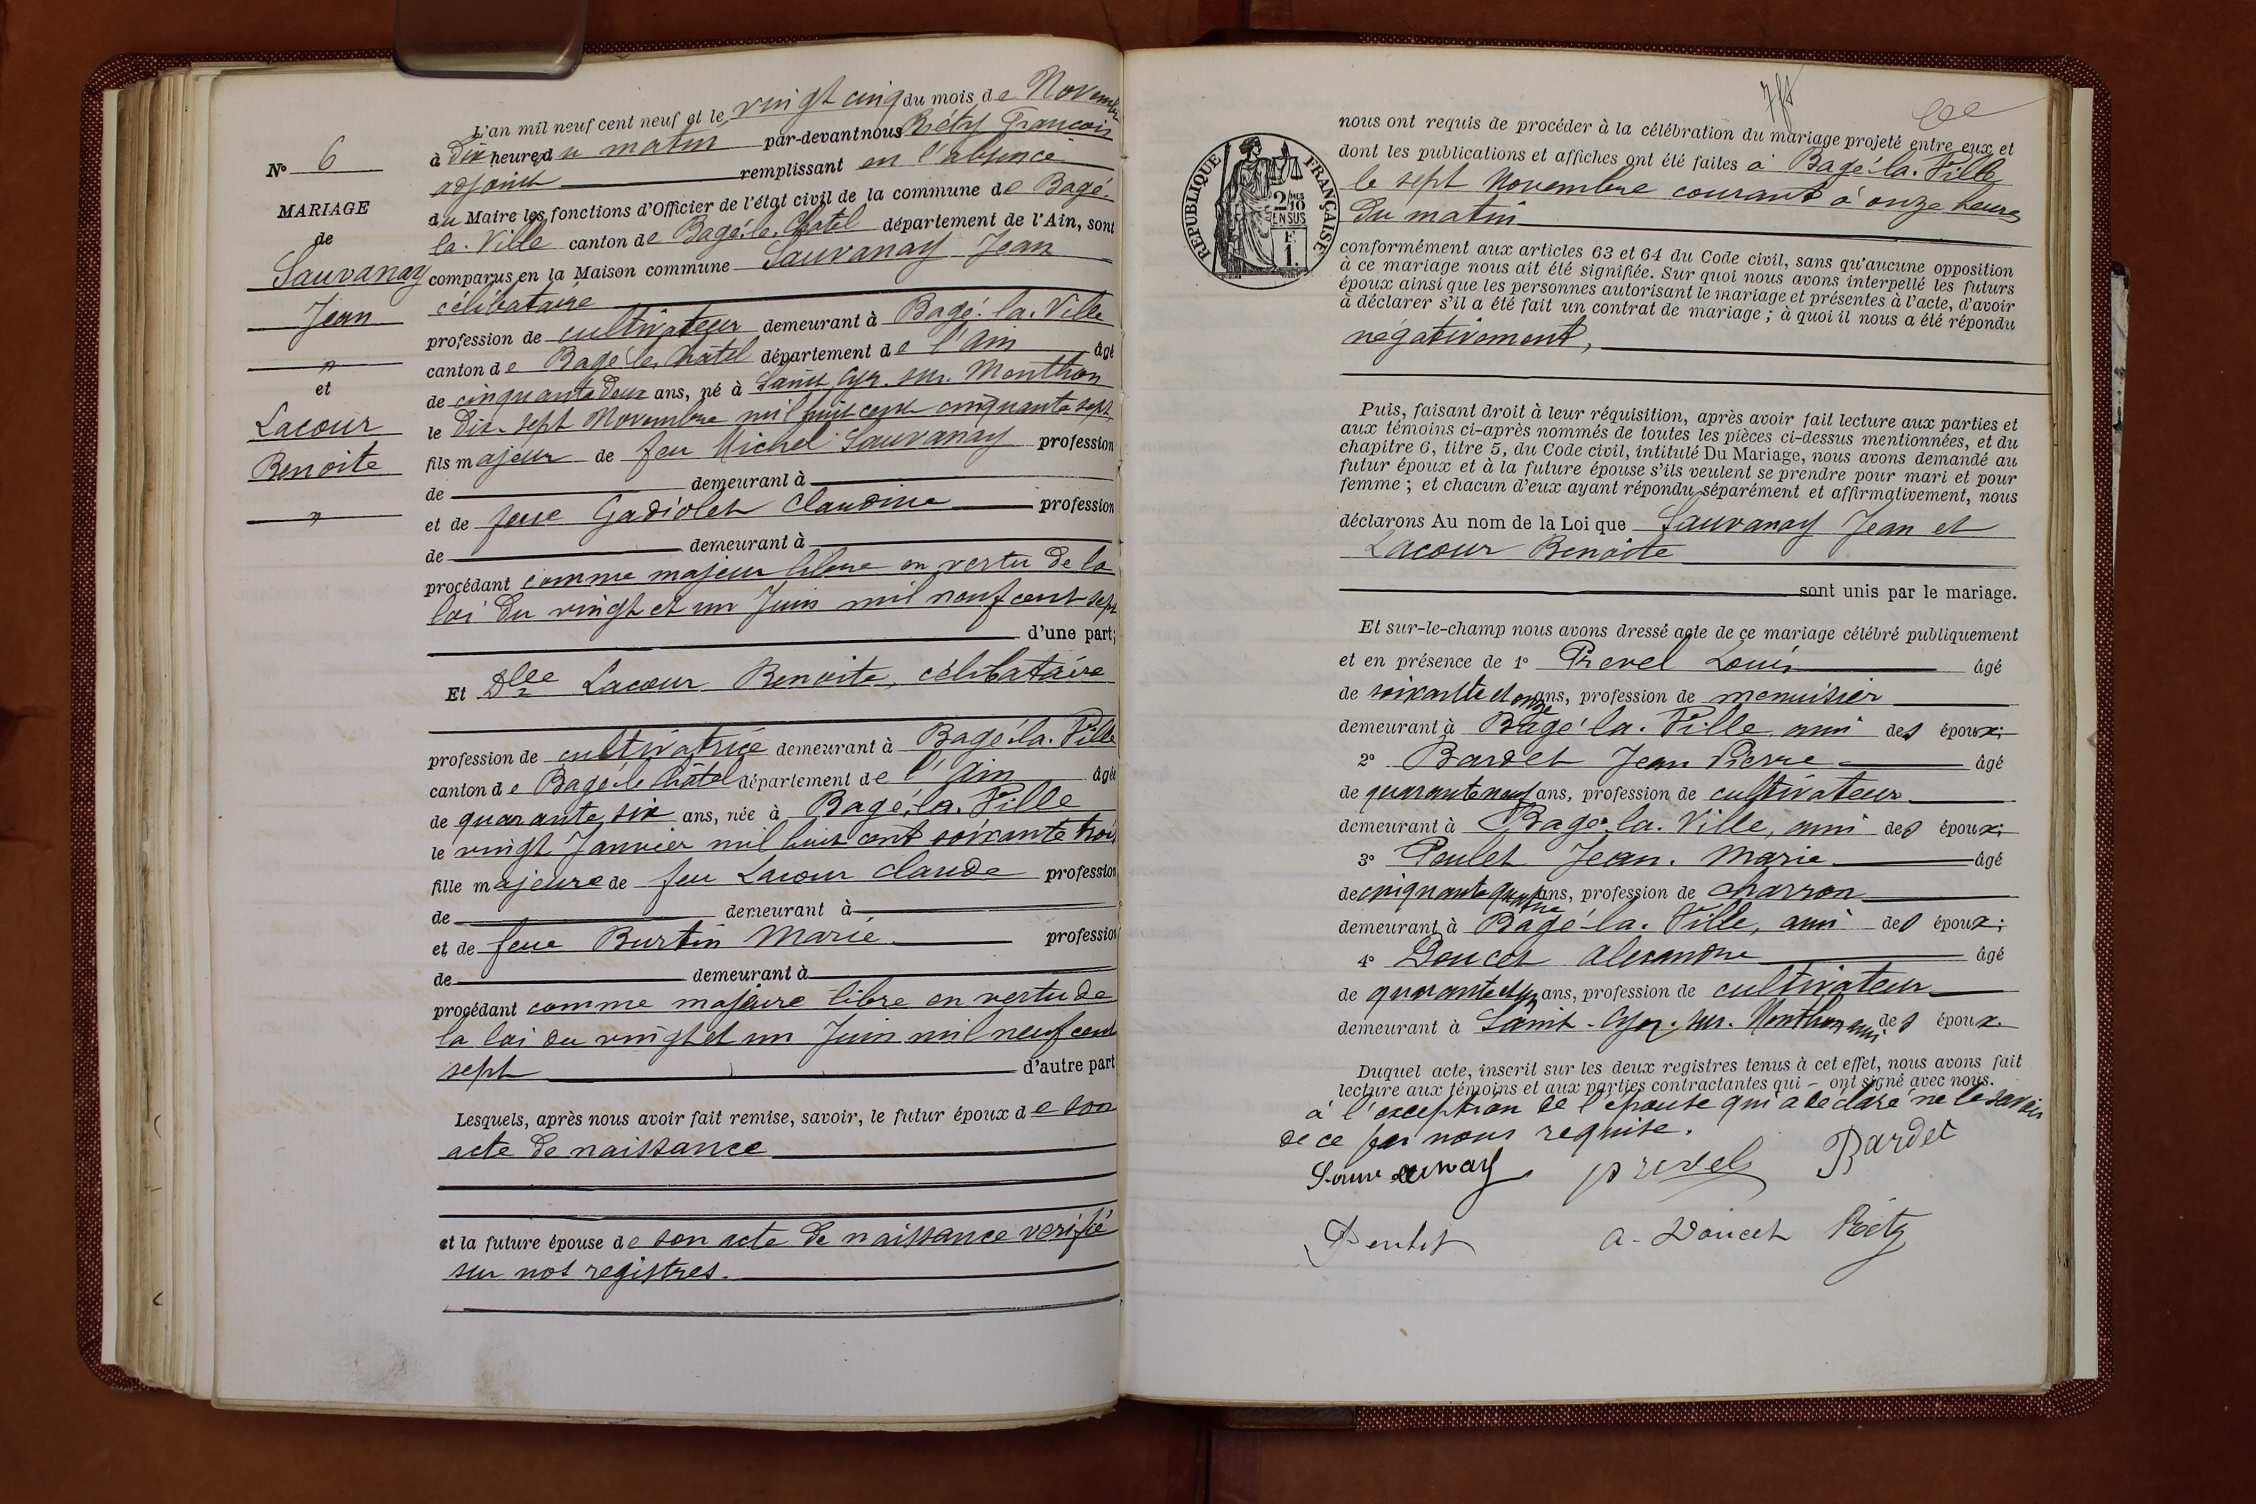 L'an mil neuf cent neuf et le vingt cinq du mois de Novembre
à dix heures du matin par-devant nous Réty François
adjoint remplissant en l'absence
du Maire les fonctions d'Officier de l'état civil de la commune de Bagé-
la-Ville canton de Bagé-le-Châtel département de l'Ain, sont
comparus en la Maison commune Sauvanay Jean
célibataire
profession de cultivateur demeurant à Bagé-la-Ville
canton de Bagé-le-Châtel département de l'Ain âgé
de cinquante deux ans, né à Saint Cyr-sur-Menthon
le dix-sept Novembre mil huit cent cinquante sept
fils majeur de feu Michel Sauvanay profession
de demeurant à
et de feue Gadiolet Claudine profession
de demeurant à
procédant comme majeur libre en vertu de la
loi du vingt et un Juin mil neuf cent sept
d'une part;
Et Dlle Lacour Benoite, célibataire
profession de cultivatrice demeurant à Bagé-la-Ville
canton de Bagé-le-Châtel département de l'Ain âgée
de quarante six ans, née à Bagé-la-Ville
le vingt Janvier mil huit cent soixante trois
fille majeure de feu Lacour Claude profession
de demeurant à
et de feue Burtin Marie profession
de demeurant à
procédant comme majeure libre en vertu de
la loi du vingt et un Juin mil neuf cent
sept d'autre part
Lesquels, après nous avoir fait remise, savoir, le futur époux de son
acte de naissance
et la future épouse de son acte de naissance verifié
sur nos registres.
N° 6
MARIAGE
de
Sauvanay
Jean
"
et
Lacour
Benoite
"
RÉPUBLIQUE FRANÇAISE
2/10 EN SUS
F.
1.
nous ont requis de procéder à la célébration du mariage projeté entre eux et
dont les publications et affiches ont été faites à Bagé-la-Ville
le sept Novembre courant à onze heures
du matin
conformément aux articles 63 et 64 du Code civil, sans qu'aucune opposition
à ce mariage nous ait été signifiée. Sur quoi nous avons interpellé les futurs
époux ainsi que les personnes autorisant le mariage et présentes à l'acte, d'avoir
à déclarer s'il a été fait un contrat de mariage ; à quoi il nous a été répondu
négativement,
Puis, faisant droit à leur réquisition, après avoir fait lecture aux parties et
aux témoins ci-après nommés de toutes les pièces ci-dessus mentionnées, et du
chapitre 6, titre 5, du Code civil, intitulé Du Mariage, nous avons demandé au
futur époux et à la future épouse s'ils veulent se prendre pour mari et pour
femme ; et chacun d'eux ayant répondu séparément et affirmativement, nous
déclarons Au nom de la Loi que Sauvanay Jean et
Lacour Benoite
sont unis par le mariage.
Et sur-le-champ nous avons dressé acte de ce mariage célébré publiquement
et en présence de 1° Prevel Louis âgé
de soixante et onze ans, profession de menuisier
demeurant à Bagé-la-Ville ami des époux;
2° Bardet Jean Pierre âgé
de quarante neuf ans, profession de cultivateur
demeurant à Bagé-la-Ville, ami des époux;
3° Peulet Jean-Marie âgé
de cinquante quatre ans, profession de charron
demeurant à Bagé-la-Ville, ami des époux;
4° Doucet Alexandre âgé
de quarante et un ans, profession de cultivateur
demeurant à Saint-Cyr-sur-Menthon ami des époux.
Duquel acte, inscrit sur les deux registres tenus à cet effet, nous avons fait
lecture aux témoins et aux parties contractantes qui – ont signé avec nous.
à l'exception de l'épouse qui a déclaré ne le savoir
de ce par nous requise.
Sauvanay Prevel Bardet
Peulet A. Doucet Réty